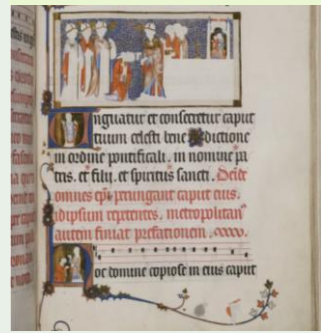 Unguatur et consecretur caput
tuum celesti bene dictione
in ordine pontificali. in nomine pa
tris. et filii. et spiritus sancti. Deide
omnes epi perungant caput eius.
idipsum repetentes. metropolitan
autem finiat prefationem.
Hoc domine copiose in eius caput